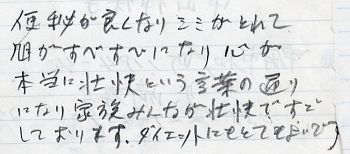 便秘が良くなりミミがとれて
肌がすべすべになり心が
本当に壮快という言葉の通り
になり家族みんなが壮快ですご
しております。ダイエットにもとてもよいです